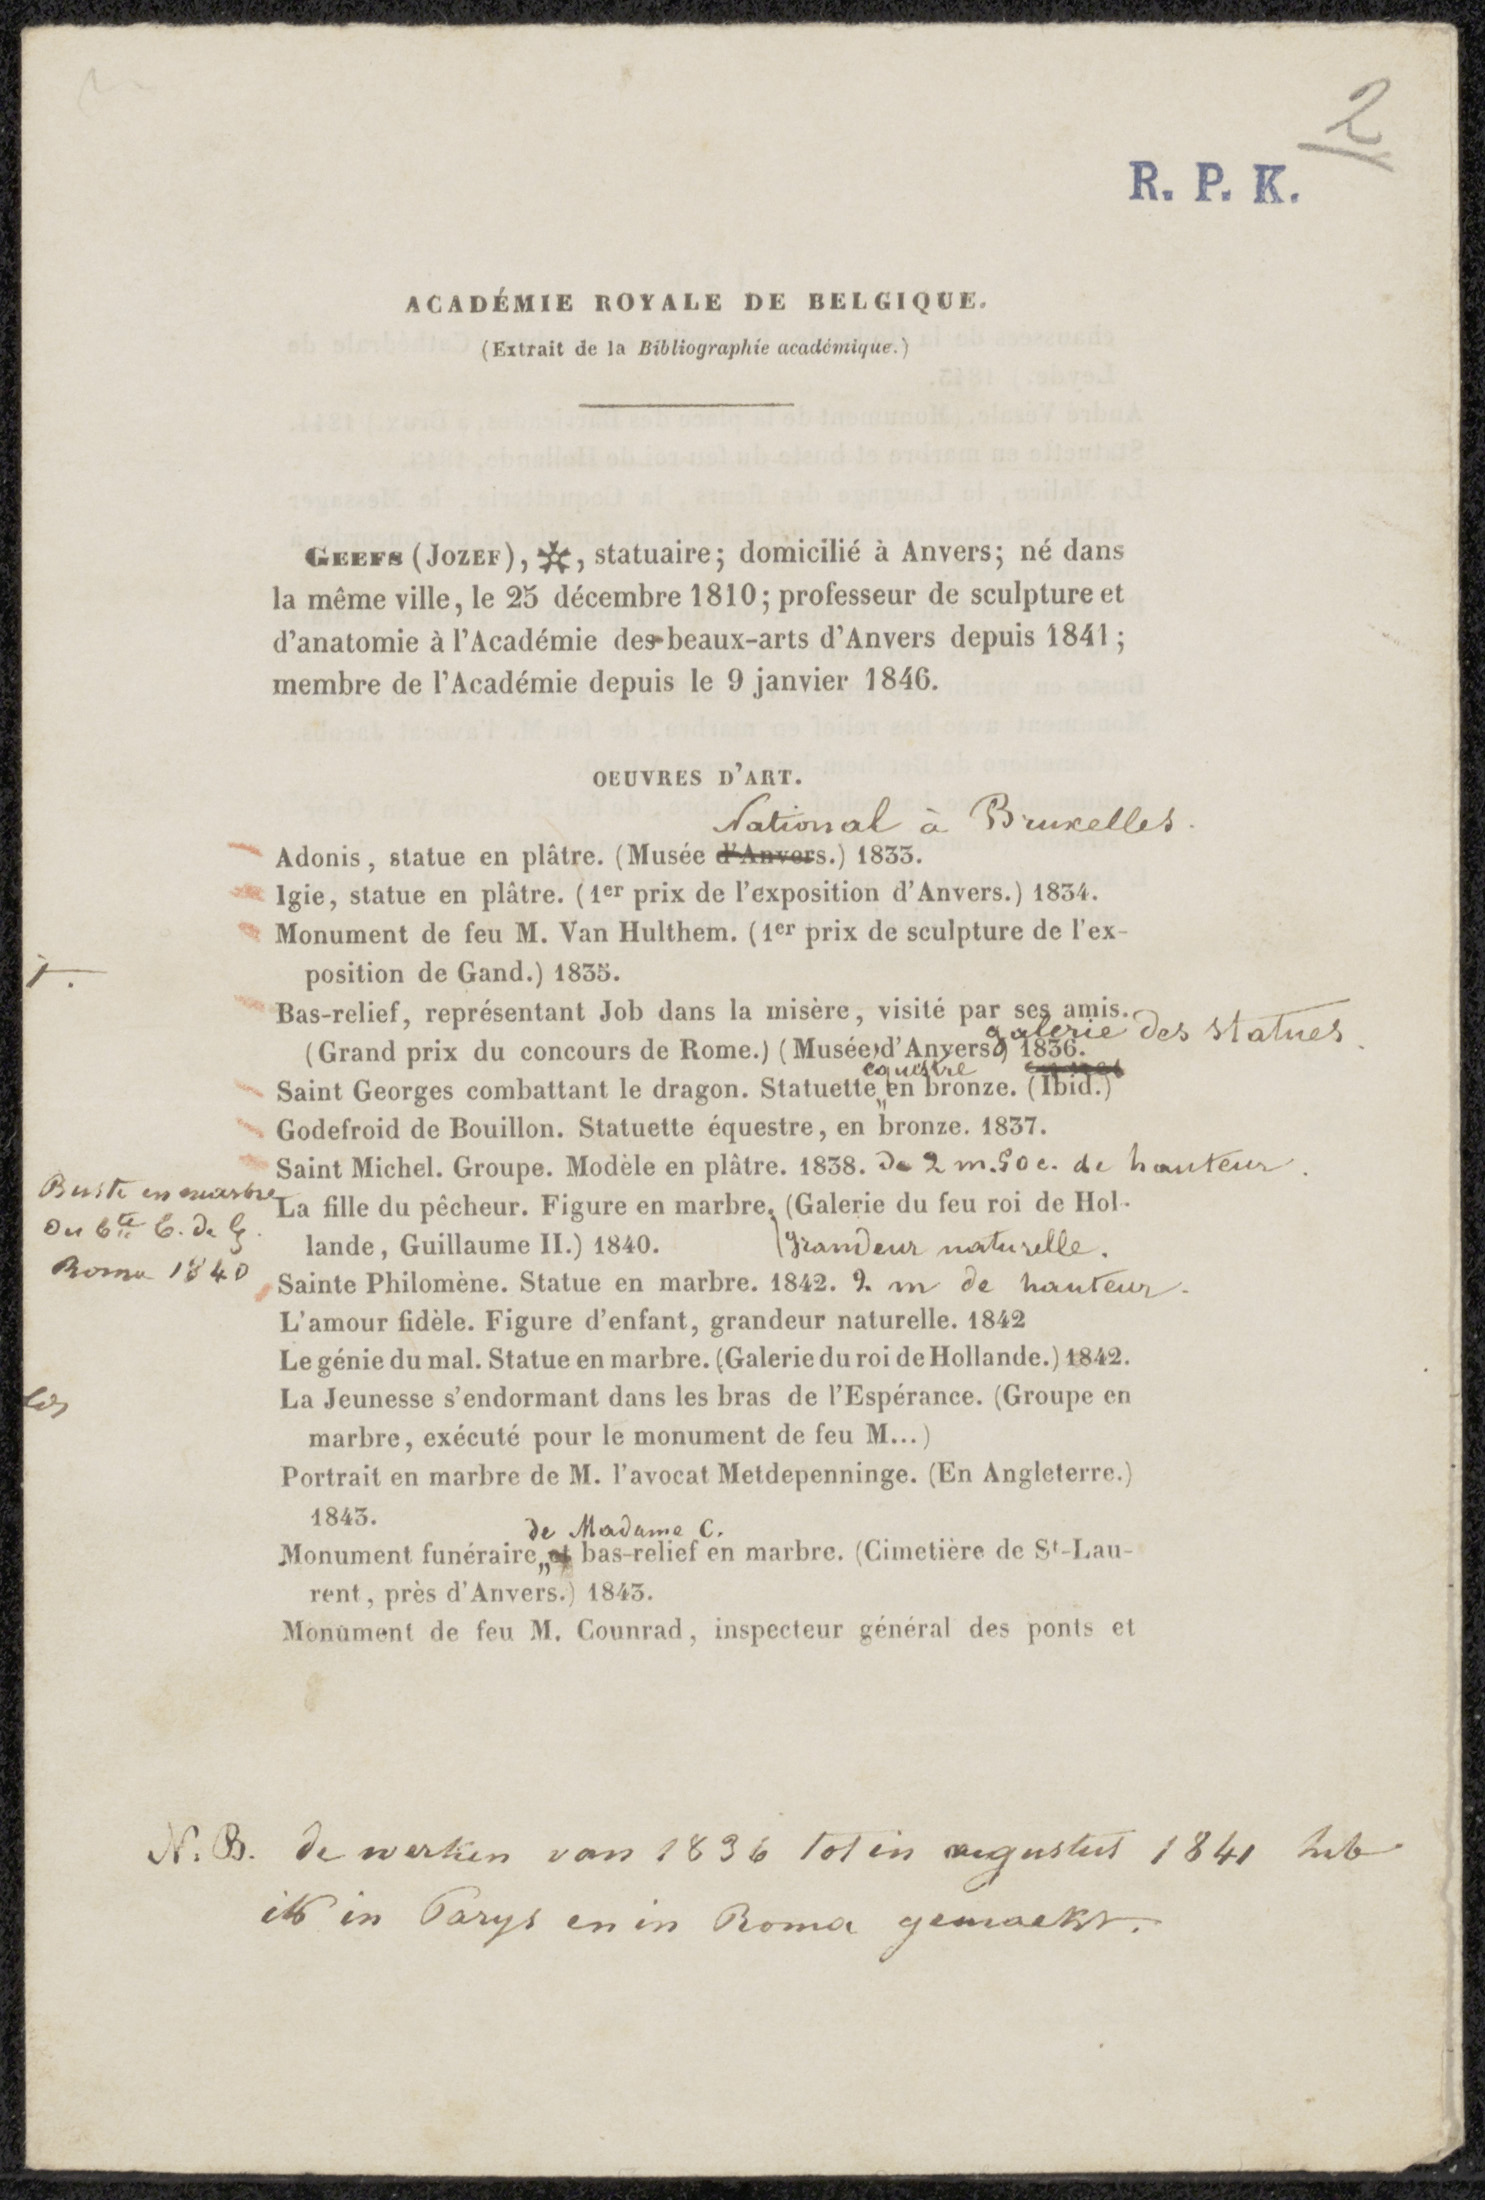 2
R. P. K.
ACADÉMIE ROYALE DE BELGIQUE.
(Extrait de la Bibliographie académique.)
GEEFS (JOZEF), ✲, statuaire; domicilié à Anvers; né dans
la même ville, le 25 décembre 1810; professeur de sculpture et
d'anatomie à l'Académie des beaux-arts d'Anvers depuis 1841;
membre de l'Académie depuis le 9 janvier 1846.
OEUVRES D'ART.
National à Bruxelles.
Adonis, statue en plâtre. (Musée d'Anvers.) 1833.
Igie, statue en plâtre. (1er prix de l'exposition d'Anvers.) 1834.
Monument de feu M. Van Hulthem. (1er prix de sculpture de l'ex-
position de Gand.) 1835.
Bas-relief, représentant Job dans la misère, visité par ses amis.
galerie des statues
(Grand prix du concours de Rome.) (Musée d'Anvers) 1836.
equestre
Saint Georges combattant le dragon. Statuette en bronze. (Ibid.)
Godefroid de Bouillon. Statuette équestre, en bronze. 1837.
Saint Michel. Groupe. Modèle en plâtre. 1838. de 2 m. 50 c. de hauteur.
Buste en marbre
du Cte C. de G.
Roma 1840
La fille du pêcheur. Figure en marbre. (Galerie du feu roi de Hol-
lande, Guillaume II.) 1840. grandeur naturelle.
Sainte Philomène. Statue en marbre. 1842. 2. m de hauteur.
L'amour fidèle. Figure d'enfant, grandeur naturelle. 1842
Le génie du mal. Statue en marbre. (Galerie du roi de Hollande.) 1842.
La Jeunesse s'endormant dans les bras de l'Espérance. (Groupe en
marbre, exécuté pour le monument de feu M...)
Portrait en marbre de M. l'avocat Metdepenninge. (En Angleterre.)
1843.
de Madame C.
Monument funéraire, et bas-relief en marbre. (Cimetière de St-Lau-
rent, près d'Anvers.) 1843.
Monument de feu M. Counrad, inspecteur général des ponts et
N. B. de werken van 1836 tot in augustus 1841 heb
ik in Parys en in Roma gemaekt.